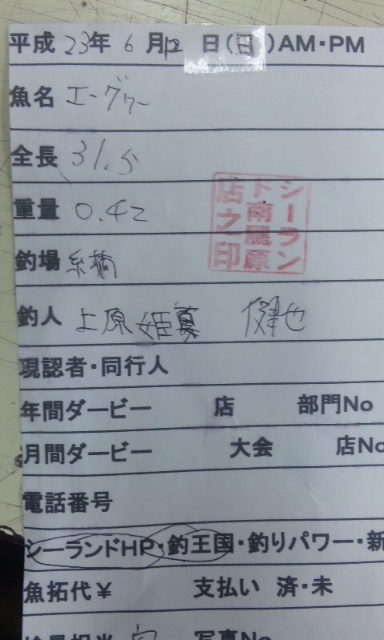 平成 23年 6月12日(日)AM・PM
魚名 エーグヮー
全長 31.5
重量 0.42
シーランド南風原店之印
釣場 糸満
釣人 上原 姫夏 健也
現認者・同行人
年間ダービー 店 部門No
月間ダービー 大会 店No
電話番号
シーランドHP・釣王国・釣りパワー・新
魚拓代¥ 支払い 済・未
写真No